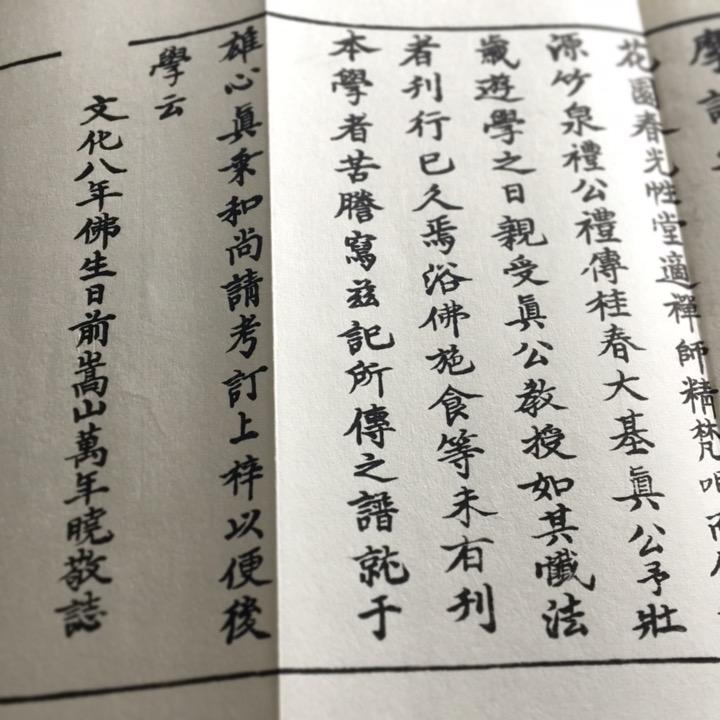 摩
花園春光性堂適禪師精梵唄
源竹泉禮公禮傳桂春大基眞公予壯
歲遊學之日親受眞公教授如其懺法
者刊行已久焉浴佛施食等未有刊
本學者苦謄寫玆記所傳之譜就于
雄心眞乗和尚請考訂上梓以便後
學云
文化八年佛生日前嵩山萬年曉敬誌